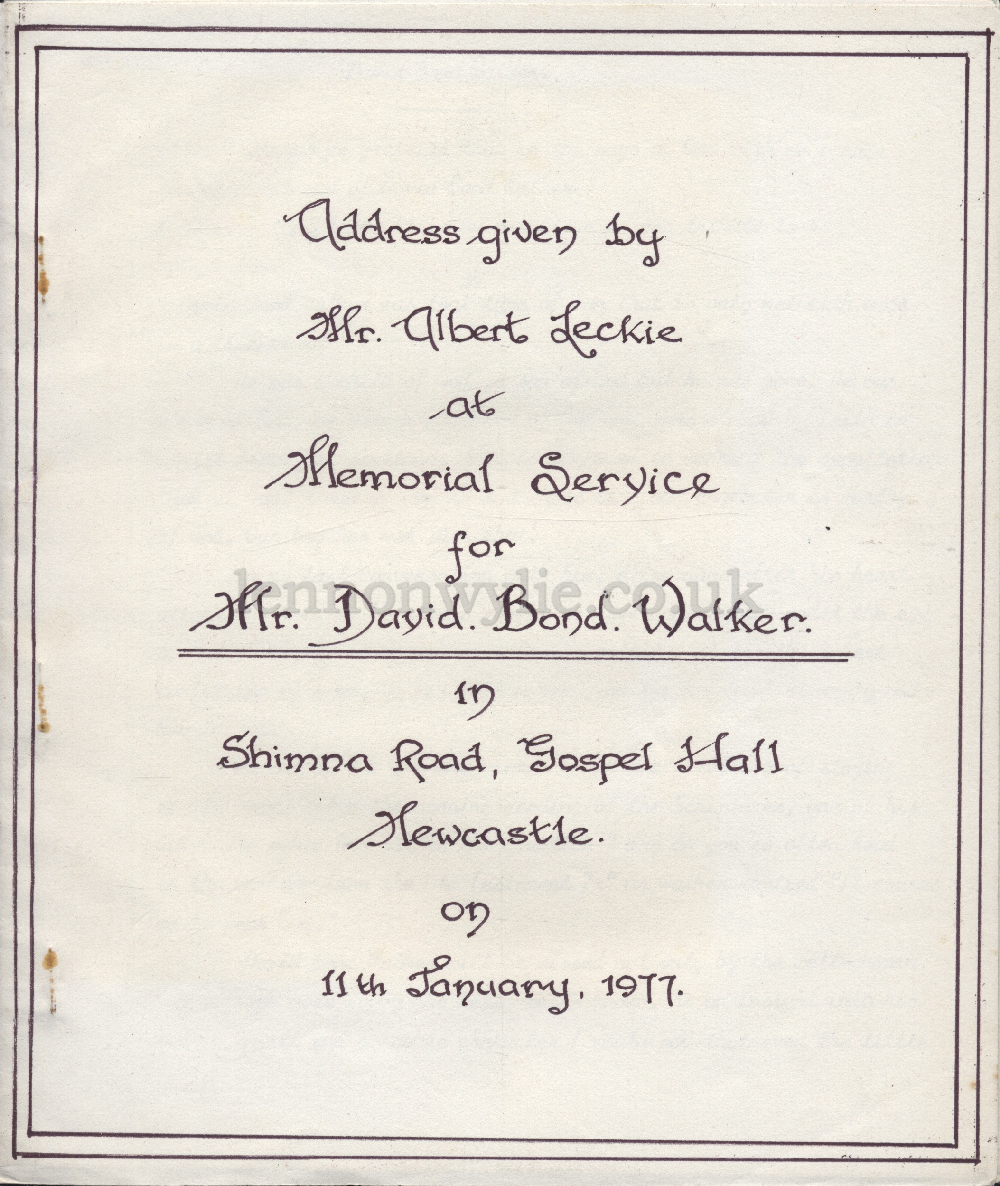 Address given by
Mr. Albert Leckie
at
Memorial Service
for
lennonwylie.co.uk
Mr. David. Bond. Walker.
in
Shimna Road, Gospel Hall
Newcastle.
on
11th January, 1977.